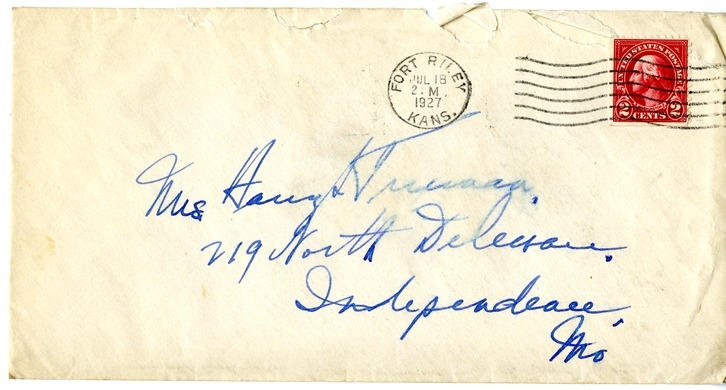 FORT RILEY
JUL 18
2. M.
1927
KANS.
UNITED STATES POSTAGE
2 CENTS 2
Mrs. Harry S Truman,
219 North Delaware,
Independence,
Mo